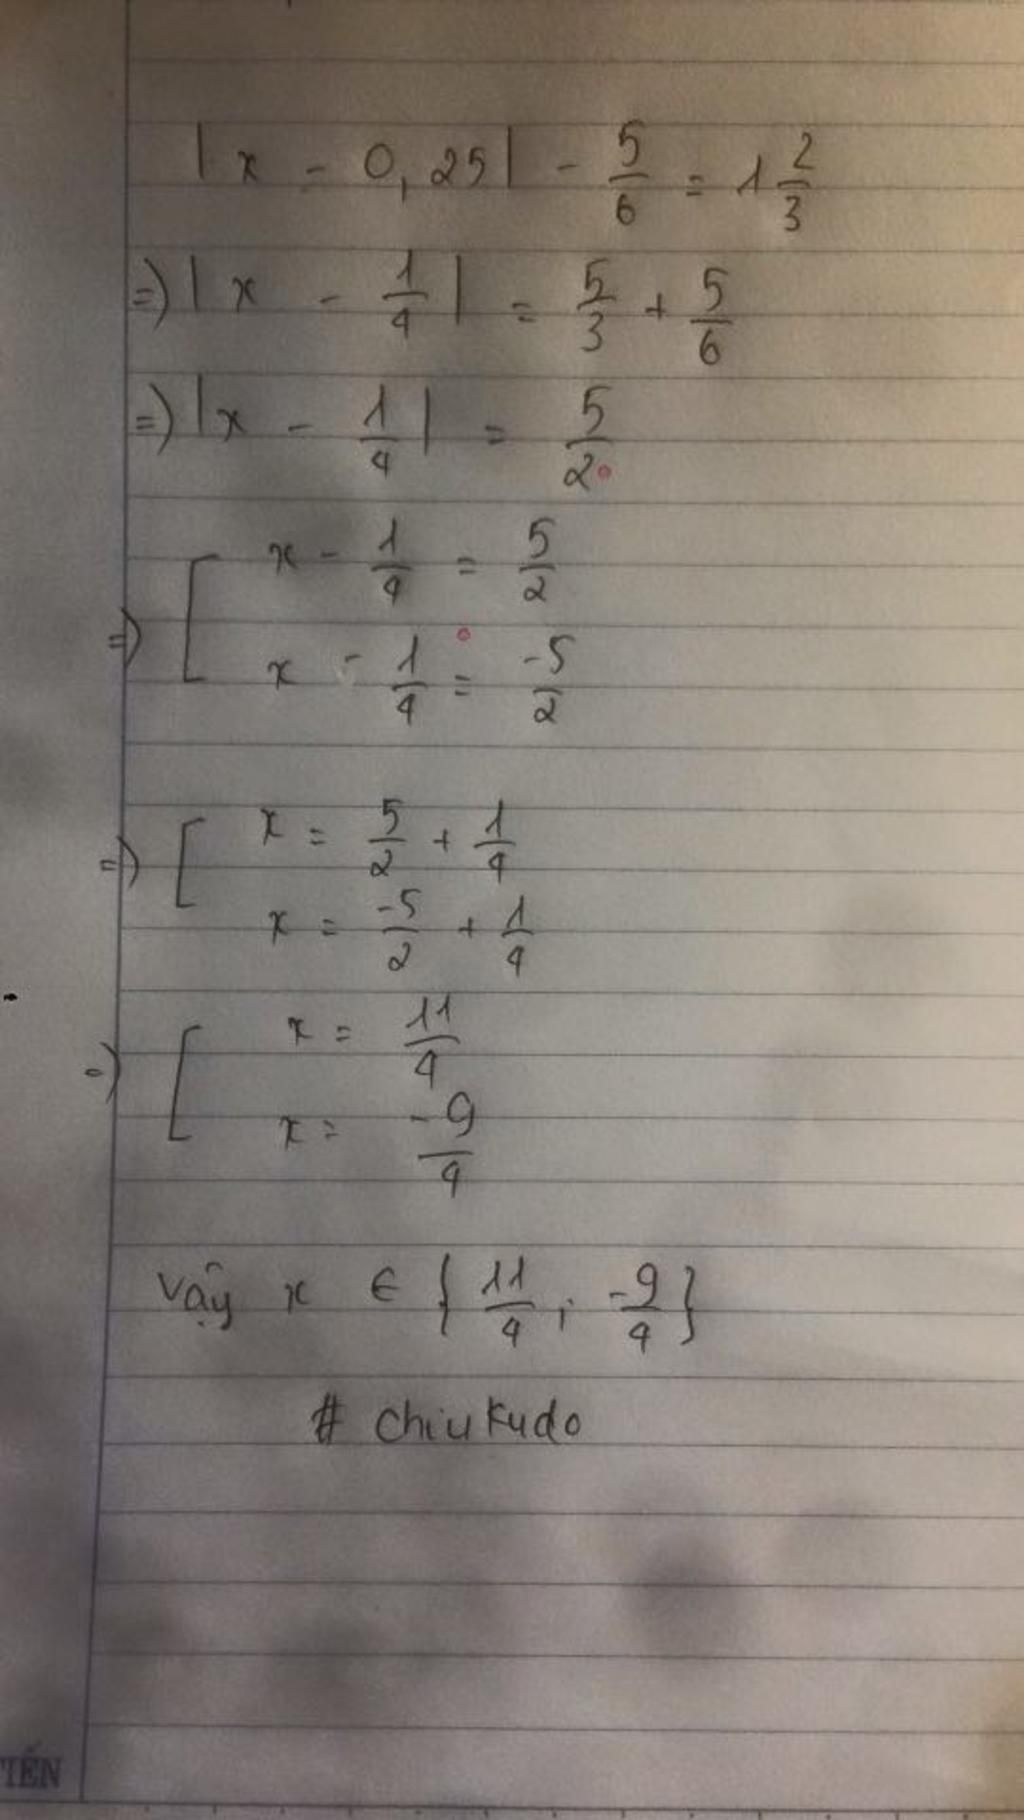 |x - 0,25| - 5/6 = 1 2/3
=) |x - 1/4| = 5/3 + 5/6
=) |x - 1/4| = 5/2
=) [ x - 1/4 = 5/2
x - 1/4 = -5/2
=) [ x = 5/2 + 1/4
x = -5/2 + 1/4
=) [ x = 11/4
x = -9/4
Vậy x ∈ {11/4 ; -9/4}
# chiukudo
TẾN